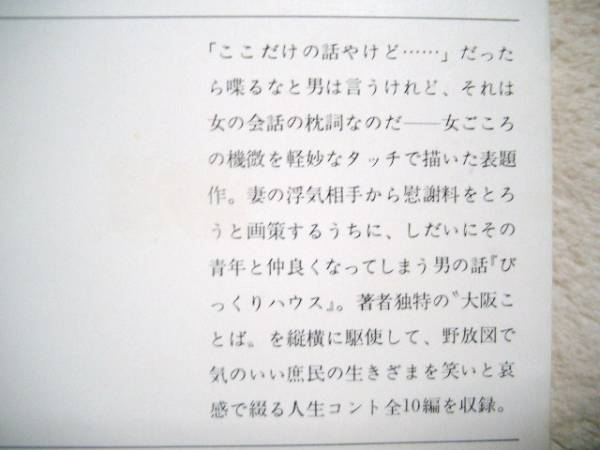 「ここだけの話やけど……」だった
ら喋るなと男は言うけれど、それは
女の会話の枕詞なのだ――女ごころ
の機微を軽妙なタッチで描いた表題
作。妻の浮気相手から慰謝料をとろ
うと画策するうちに、しだいにその
青年と仲良くなってしまう男の話『び
っくりハウス』。著者独特の〝大阪こ
とば〟を縦横に駆使して、野放図で
気のいい庶民の生きざまを笑いと哀
感で綴る人生コント全10編を収録。